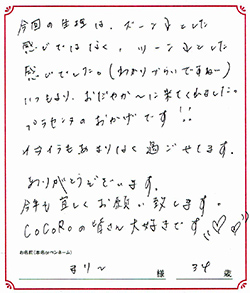 今回の生理は、ズーン↓とした
感じではなく、ツーン↓とした
感じでした。(わかりづらいですねー)
いつもより、おだやか〜に来てくれました。
プラセンタのおかげです!!
イライラもあまりなく過ごせてます。
ありがとうございます。
今年も宜しくお願い致します。
CoCoRoの皆さん大好きです♡♡
お名前(本名orペンネーム)
まりー 様 34 歳